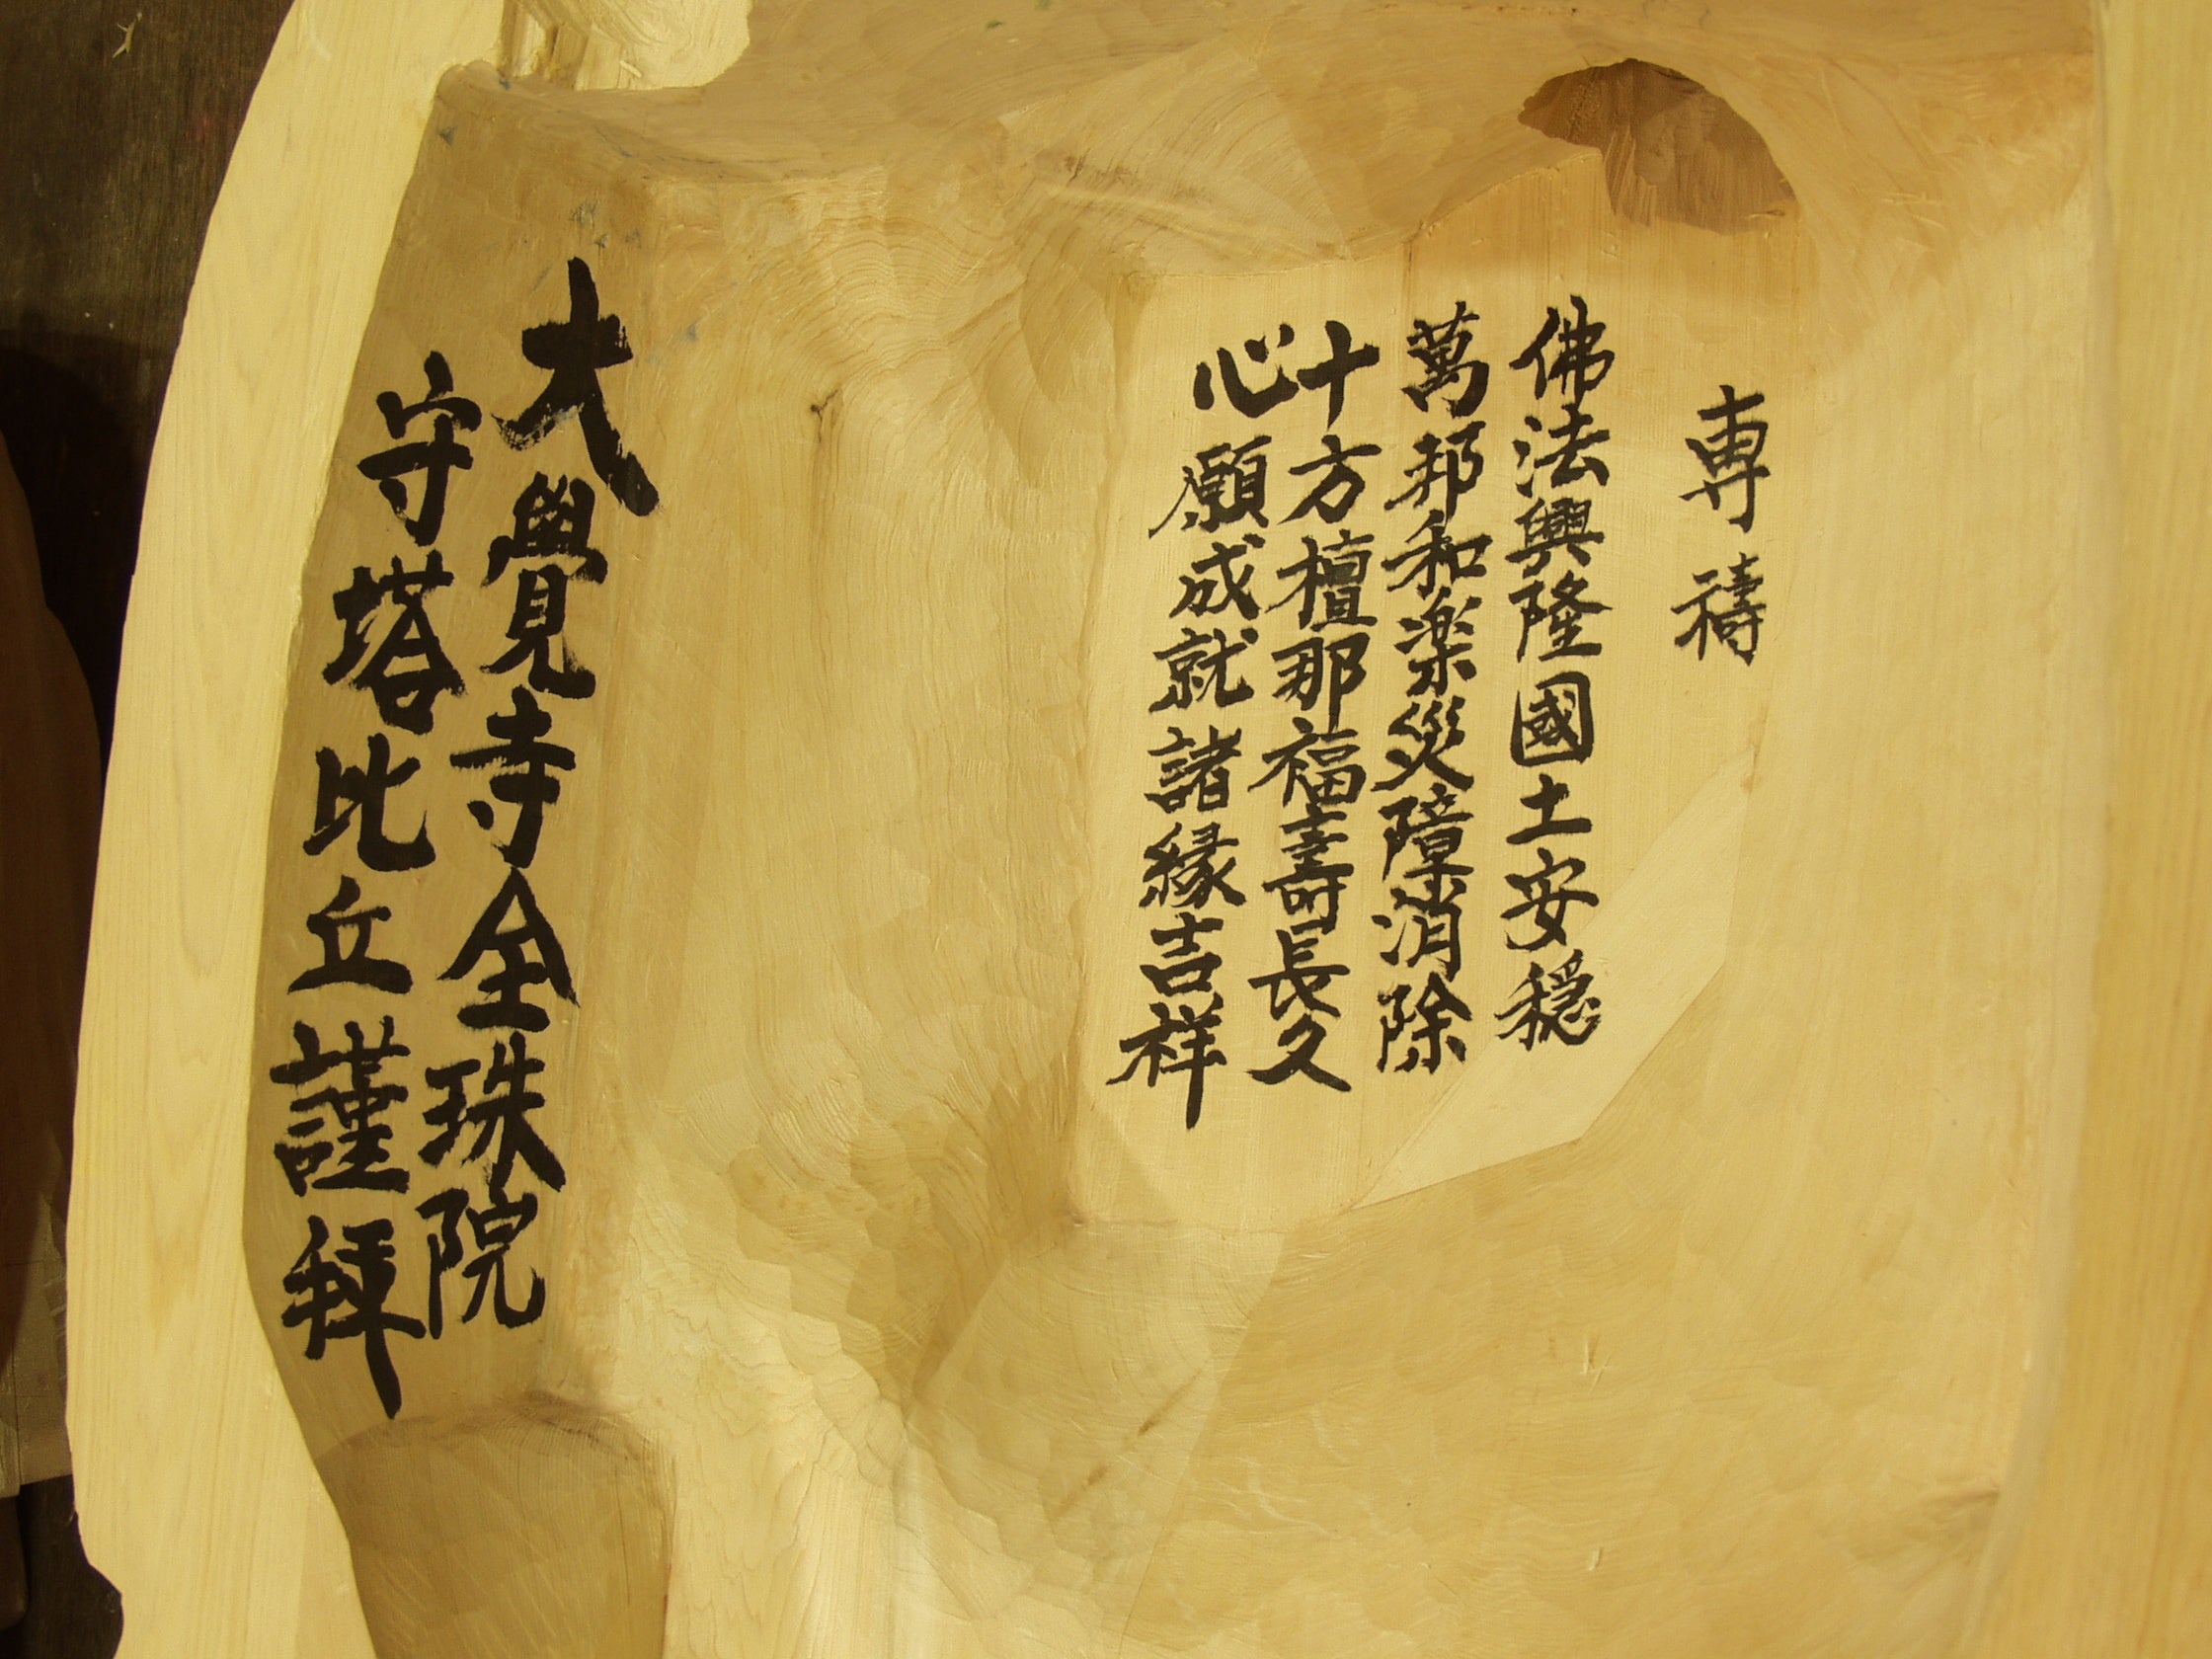 専禱
佛法興隆國土安穏
萬邦和楽災障消除
十方檀那福壽長久
心願成就諸縁吉祥
大覺寺全珠院
守塔比丘謹拜